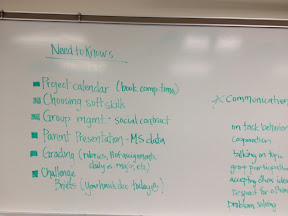 Need to Knows
Project calendar (book comp. time)
Choosing soft skills
Group mgmt - social contract
Parent Presentation - MS data
Grading (rubrics, Hot assignments,
daily vs major, etc)
Challenge
Briefs (your hmwk due today!!!)
Communication
on task behavior
cooperation
talking on topic
great participation
accepting others ideas
respect for others
problem solving